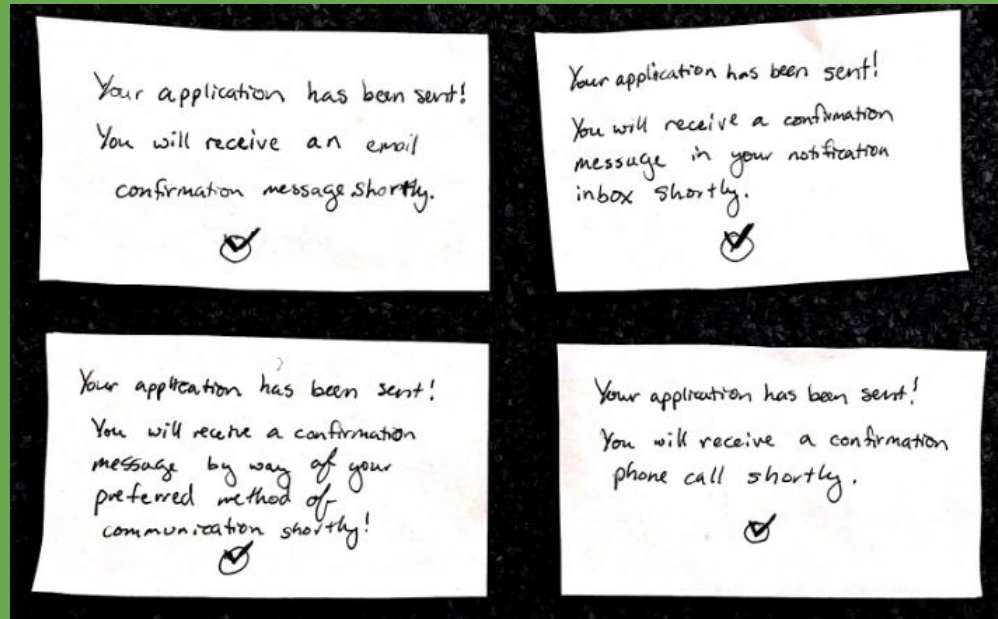 Your application has been sent!
You will receive an email
confirmation message shortly.
Your application has been sent!
You will receive a confirmation
message in your notification
inbox shortly.
Your application has been sent!
You will receive a confirmation
message by way of your
preferred method of
communication shortly!
Your application has been sent!
You will receive a confirmation
phone call shortly.